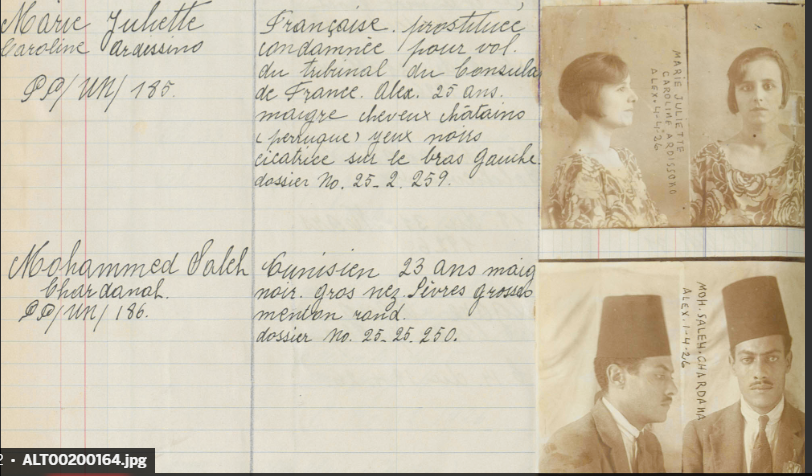 Marie Juliette
Caroline Ardessino
PP/UN/185.
Française. prostituée
condamnée pour vol.
du tribunal du Consula
de France. Alex. 25 ans.
maigre cheveux châtains
(perruque) yeux noirs
cicatrice sur le bras gauche
dossier No. 25-2. 259.
MARIE JULIETTE
CAROLINE ARDISSONO
ALEX. 4-4-26
Mohammed Saleh
Chardanah.
PP/UN/186.
Tunisien 23 ans maig
noir. gros nez. lèvres grosses
menton rond.
dossier No. 25-25. 250.
MOH. SALEH. CHARDANA
ALEX. 1-4-26
2 · ALT00200164.jpg